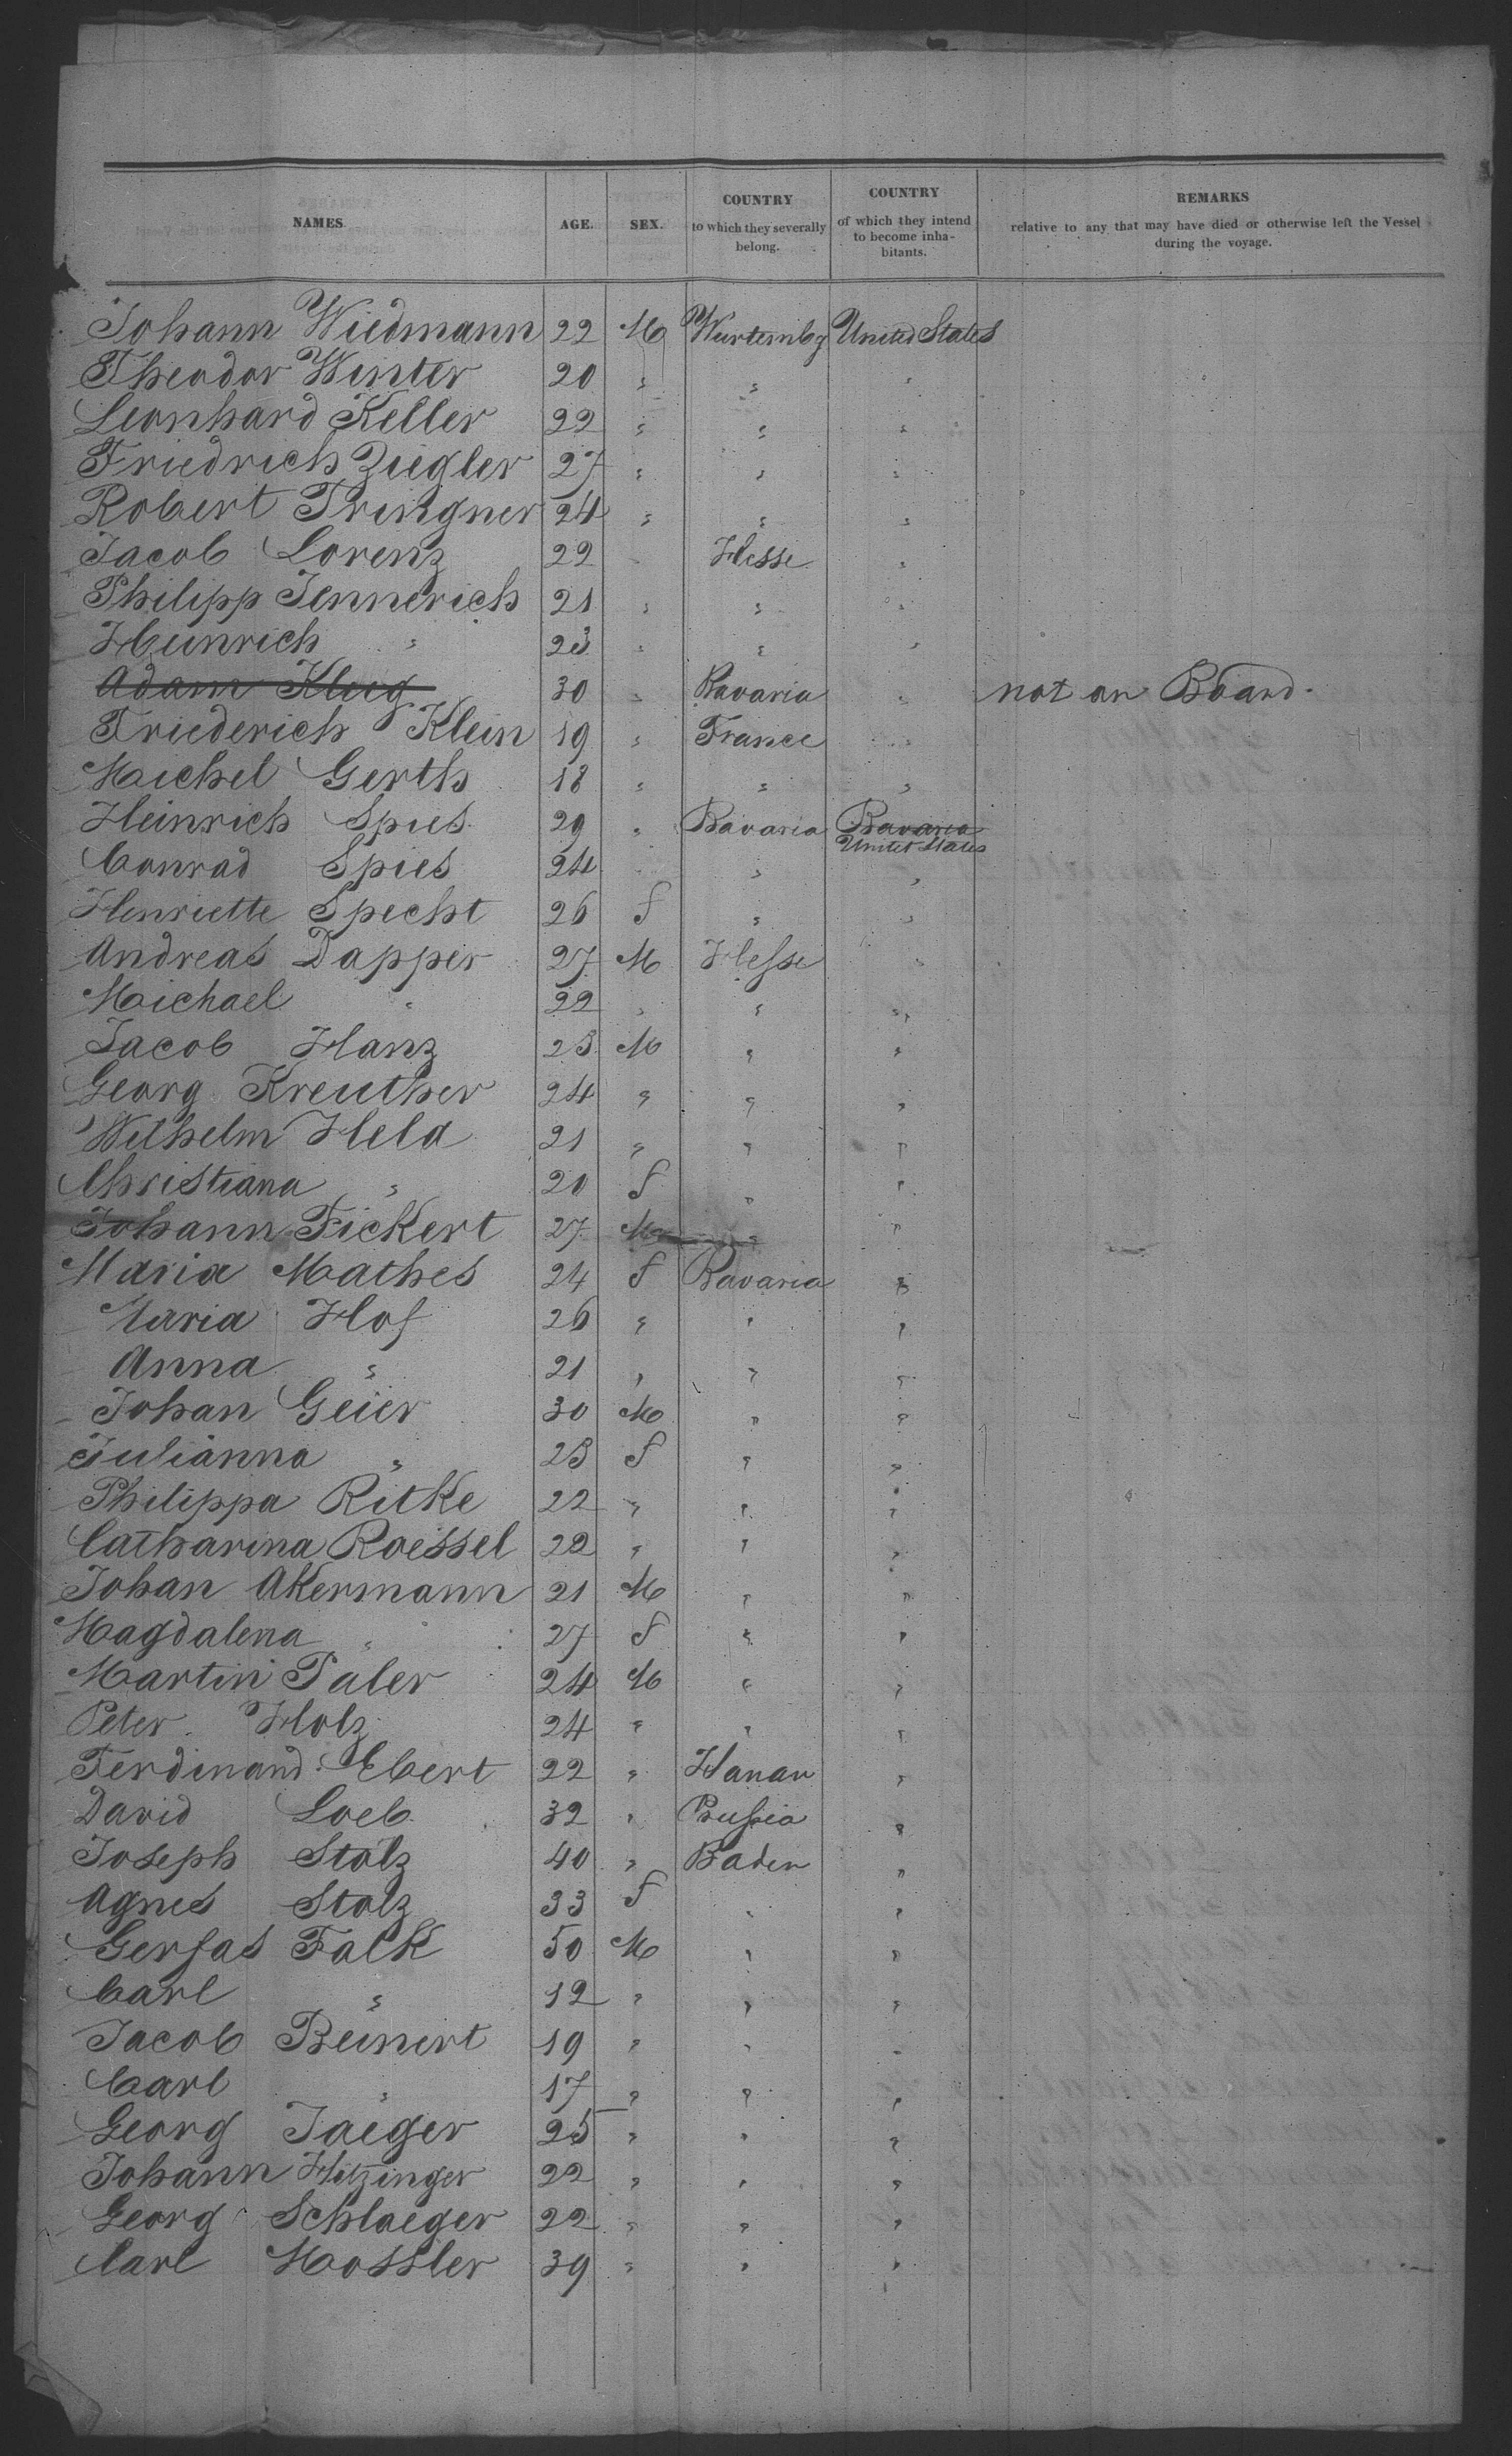 NAMES AGE. SEX. COUNTRY to which they severally belong. COUNTRY of which they intend to become inha-bitants. REMARKS relative to any that may have died or otherwise left the Vessel during the voyage.
Johann Wiedmann 22 M Wurtembg United States
Theodor Winter 20 " " "
Leonhard Keller 22 " " "
Friedrich Ziegler 27 " " "
Robert Tringner 24 " " "
Jacob Lorenz 22 " Hesse "
Philipp Jennerich 21 " " "
Heinrich " 23 " " "
Adam Klug 30 " Bavaria " not on Board.
Friederich Klein 19 " France "
Michel Gerth 18 " " "
Heinrich Spies 29 " Bavaria Bavaria
United States
Conrad Spies 24 " " "
Henriette Specht 26 f " "
Andreas Dapper 27 M Hesse "
Michael " 22 " " "
Jacob Hanz 23 M " "
Georg Kreuther 24 " " "
Wilhelm Held 21 " " "
Christiana " 20 f " "
Johann Fickert 27 M " "
Maria Mathes 24 f Bavaria "
Maria Hof 26 " " "
Anna " 21 " " "
Johan Geier 30 M " "
Julianna " 23 f " "
Philippa Ritke 22 " " "
Catharina Roessel 22 " " "
Johan Akermann 21 M " "
Magdalena " 27 f " "
Martin Paler 24 M " "
Peter Holz 24 " " "
Ferdinand Ebert 22 " Hanau "
David Loeb 32 " Prussia "
Joseph Stolz 40 " Baden "
Agnes Stolz 33 f " "
Gersas Falk 50 M " "
Carl " 12 " " "
Jacob Beinert 19 " " "
Carl " 17 " " "
Georg Jaeger 25 " " "
Johann Hitzinger 22 " " "
Georg Schlaeger 22 " " "
Carl Mossler 39 " " "